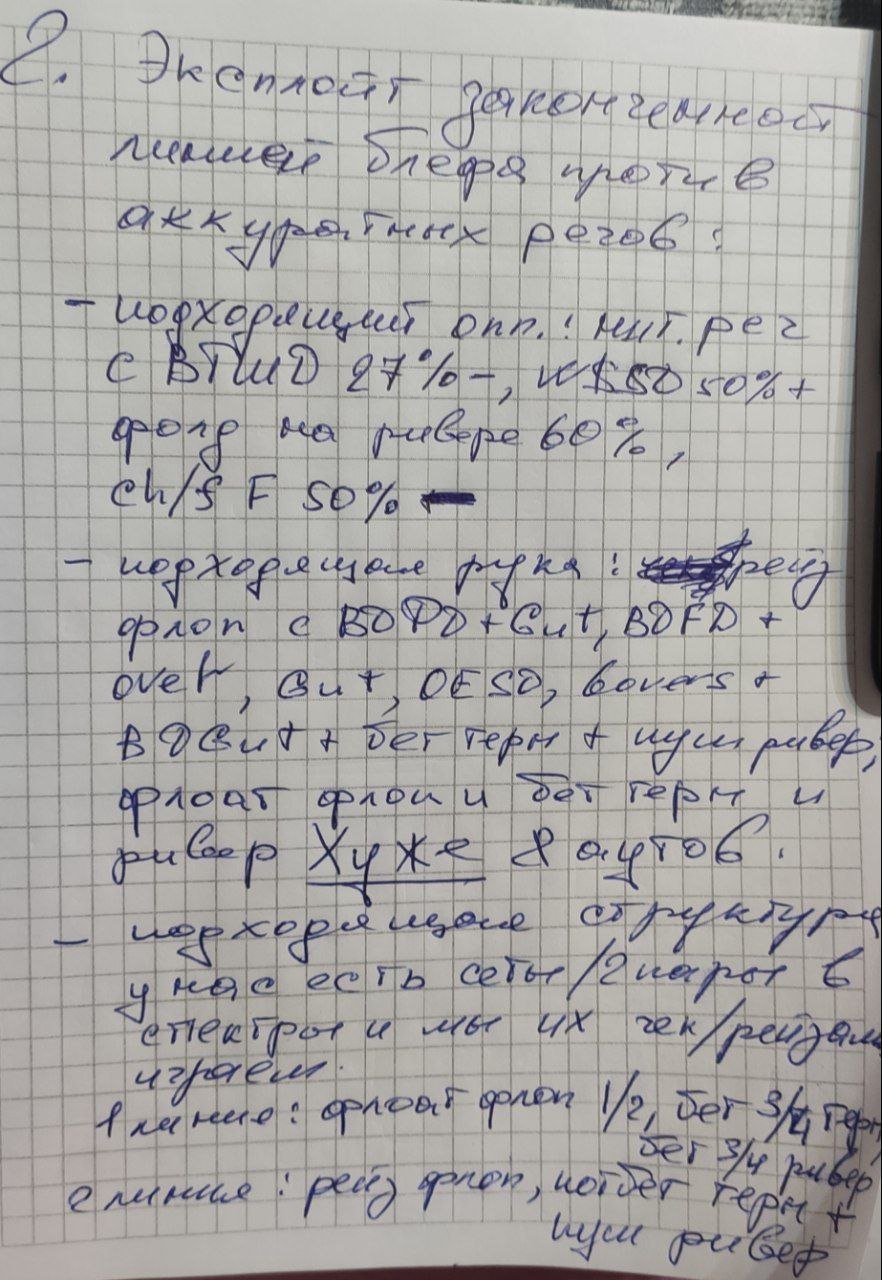 2. Эксплойт законченной
линией блефа против
аккуратных регов:
- подходящий опп.: нит. рег
с ВТШD 27%-, W$SD 50%+
фолд на ривере 60%,
ch/f F 50%
- подходящая рука: рейз
флоп с BDFD+Gut, BDFD+
over, Gut, OESD, 6overs +
BDGut + бет терн + пуш ривер,
флоат флоп и бет терн и
ривер Хуже 8 аутов.
- подходящая структура
у нас есть сеты/2пары в
спектры и мы их чек/рейзами
играем.
1 линия: флоат флоп 1/2, бет 3/4 терн,
бет 3/4 ривер
2 линия: рейз флоп, потбет терн +
пуш ривер